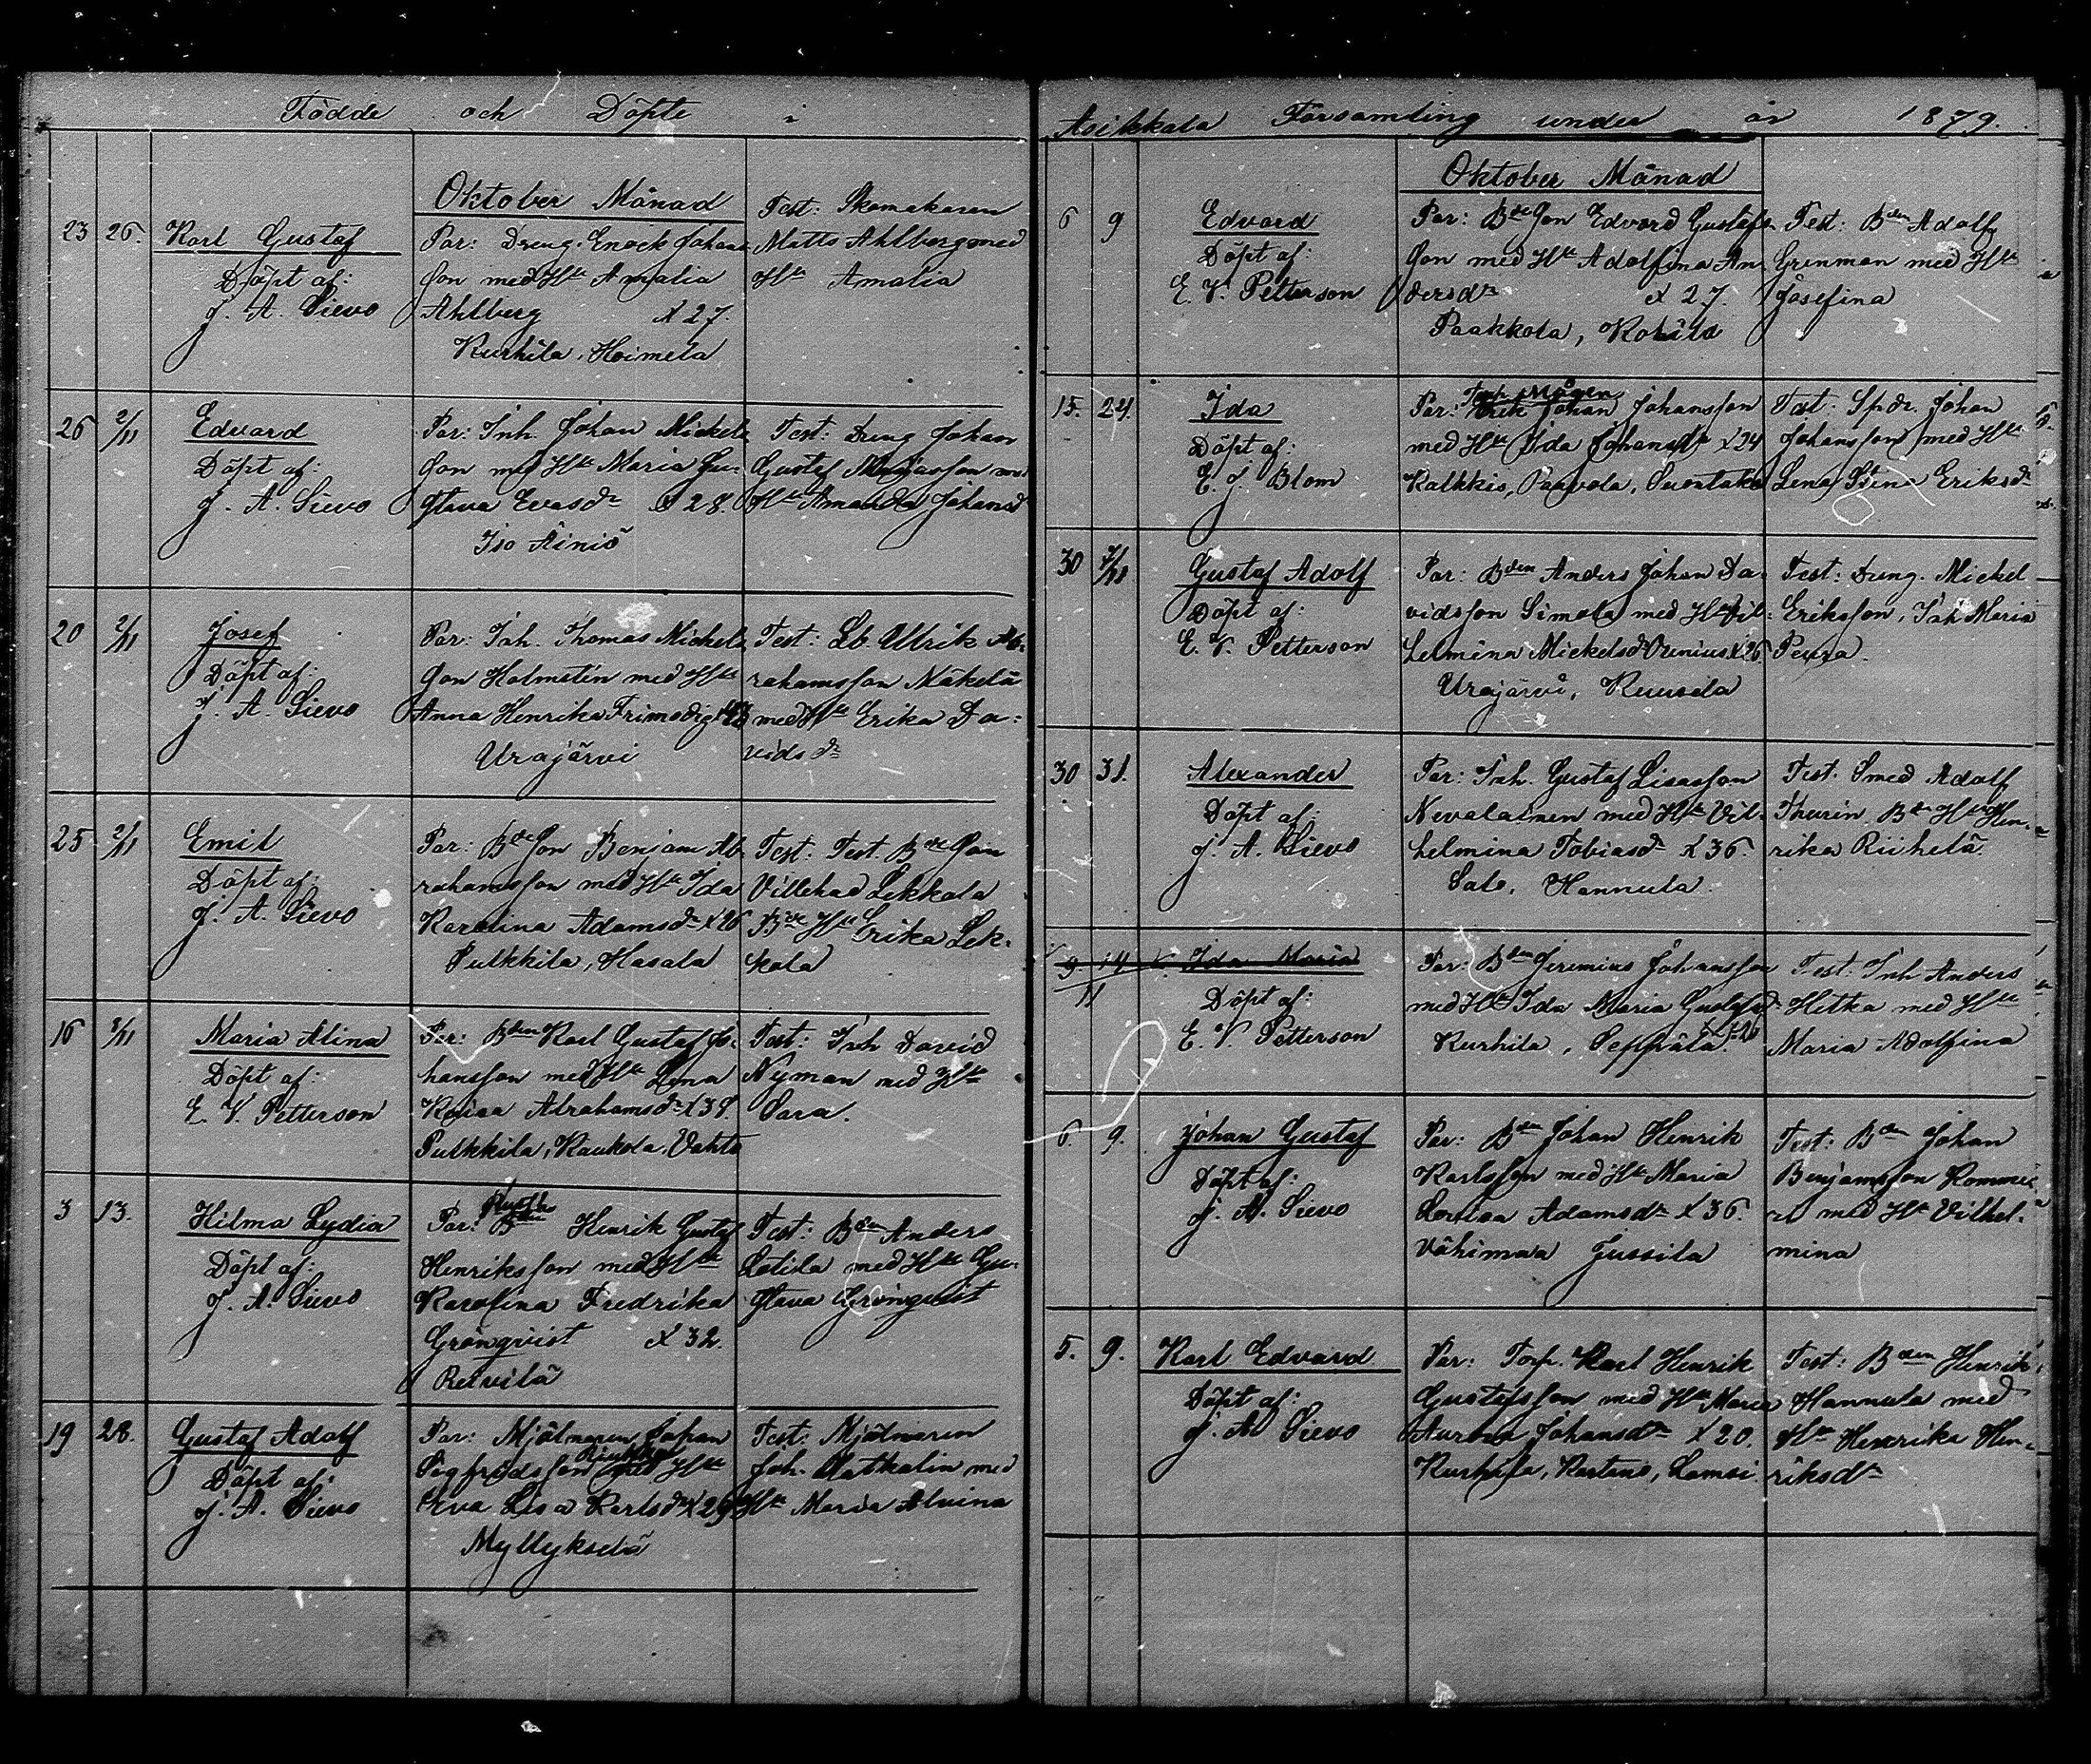 Födde och Döpte i
Oktober Månad
23 26. Karl Gustaf
Döpt af:
J. A. Sievo
Par: Dreng. Enock Johans
son med Hu Amalia
Ahlberg x 27.
Kurhila, Hoimela
Test: Skomakaren
Matts Ahlberg med
Hu Amalia
26 2/11 Edvard
Döpt af:
J. A. Sievo
Par: Inh. Johan Mickels
son med Hu Maria Gu-
stava Evasdr x 28.
Iso Äiniö
Test: Dreng Johan
Gustaf
Hu Amanda Johansd
20 2/11 Josef
Döpt af:
J. A. Sievo
Par: Inh. Thomas Mickels
son Holmstén med Hu
Anna Henrika Frimodig
Urajärvi
Test: Lb. Ullrik Ab-
rahamsson Näkelä
med Hu Erika Da-
vidsdr
25 2/11 Emil
Döpt af:
J. A. Sievo
Par: Bde Son Benjam Ab-
rahamsson med Hu Ida
Karolina Adamsdr x 26
Pulkkila, Hasala
Test: Test. Bde Son
Villehad Lekkola
Bde Hu Erika Lek-
kola
16 /11 Maria Alina
Döpt af:
E. V. Petterson
Par: Bden Karl Gustaf Jo-
hansson med Hu Lena
Abrahamsdr x 38.
Pulkkila, Kaukola, Vahto
Test: Inh David
Nyman med Hu
Sara.
3 13. Hilma Lydia
Döpt af:
J. A. Sievo
Par: Henrik Gustaf
Henriksson med Hu
Karolina Fredrika
Grönqvist x 32.
Reivilä
Test: Bden Anders
Lotila med Hu Gu-
stava Grönqvist
19 28. Gustaf Adolf
Döpt af:
J. A. Sievo
Par: Mjölnaren Johan
Sigfredsson med Hu
Eva Lisa Karlsdr x 29
Myllykselä
Test: Mjölnaren
Joh. Matkalin med
Hu Maria Alvina
Asikkala Församling under år 1879.
Oktober Månad
6 9 Edvard
Döpt af:
E. V. Petterson
Par: Bde Son Edvard Gustafs-
son med Hu Adolfina An-
dersdr x 27.
Paakkola, Kohila
Test: Bden Adolf
Grenman med Hu
Josefina
15. 24. Ida
Döpt af:
E. J. Blom
Par: Johan Johansson
med Hu Ida Johansdr x 24
Kalkkis, Paavola,
Test: Spdr. Johan
Johansson med Hu
Lena Stina Eriksdr
30 /11 Gustaf Adolf
Döpt af:
E. V. Petterson
Par: Bden Anders Johan Da-
vidsson Simola med Hu Vil-
helmina Mickelsdr x 26
Urajärvi, Ruusila
Test: Dreng. Mickel
Eriksson, Inh Maria
Peura.
30 31. Alexander
Döpt af:
J. A. Sievo
Par: Inh. Gustaf Lisasson
Nevalainen med Hu Vil-
helmina Tobiasdr x 36.
Salo, Hannula.
Test. Smed Adolf
Thurin Bde Hu Hen-
rika Riihelä.
9. 14 Ida Maria
11
Döpt af:
E. V. Petterson
Par: Bden Jeremias Johansson
med Hu Ida Maria Gustafsd
Kurhila, Seppälä.
Test: Inh Anders
Hitka med Hu
Maria Adolfina
6. 9. Johan Gustaf
Döpt af:
J. A. Sievo
Par: Bden Johan Henrik
Karlsson med Hu Maria
Lovisa Adamsdr x 36.
Vähimaa Jussila
Test: Bden Johan
Benjamsson Rommi
med Hu Vilhel-
mina
5. 9. Karl Edvard
Döpt af:
J. A. Sievo
Par: Torp. Karl Henrik
Gustafsson med Hu Maria
Aurora Johansdr x 20.
Kurhila, Kartano,
Test: Bden Henrik
Hannula med
Hu Henrika Hen-
riksdr